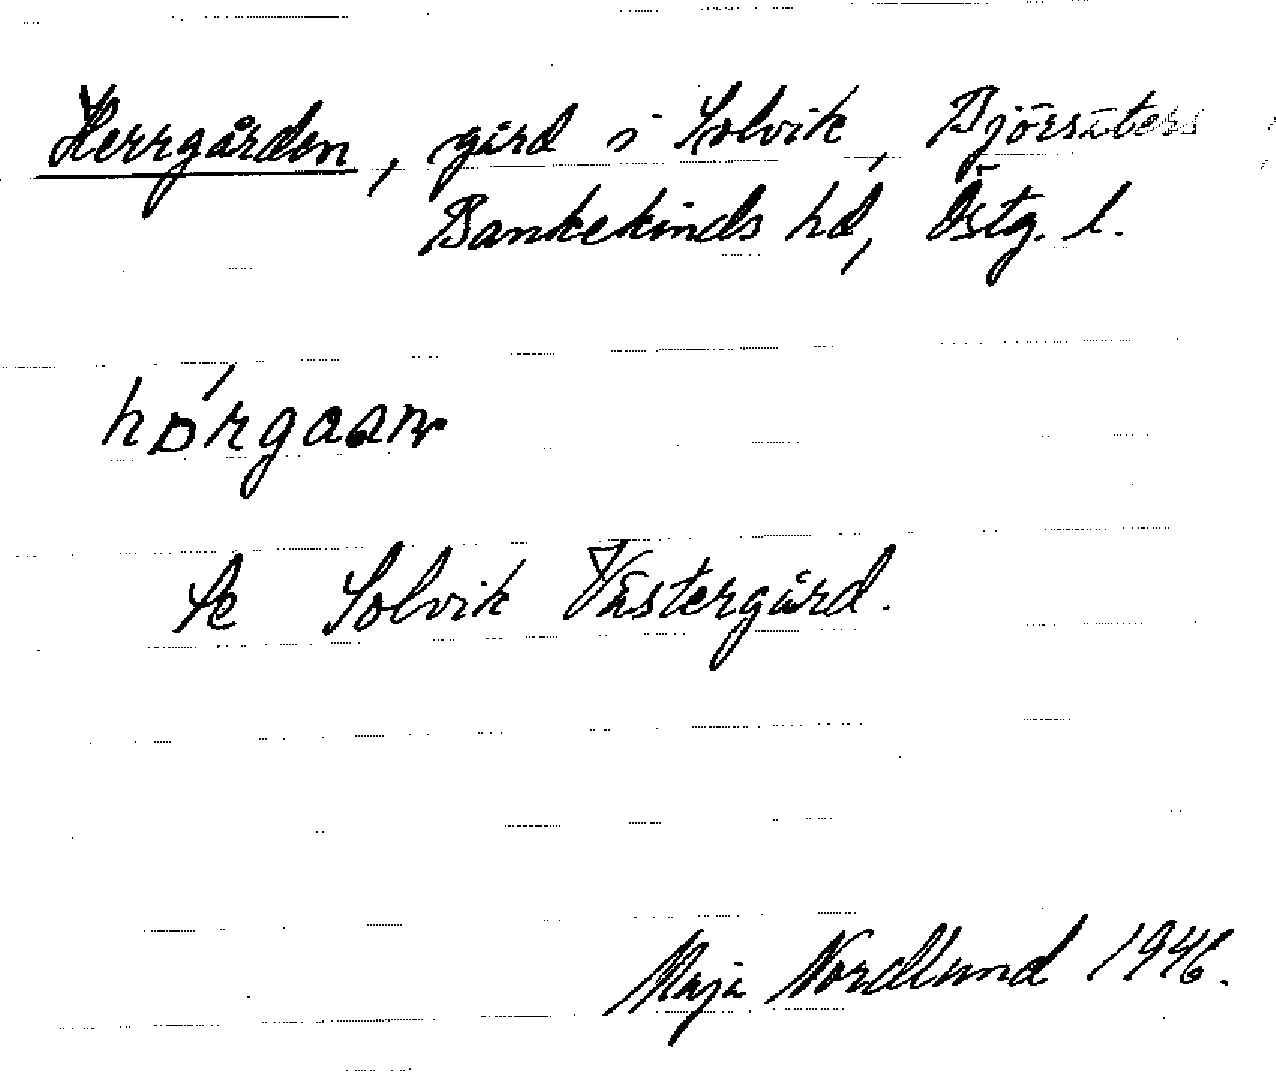 Herrgården, gård i Solvik, Björsäters
Bankekinds hd, Östg. l.
Se Solvik Västergård.
Maja Nordlund 1946.